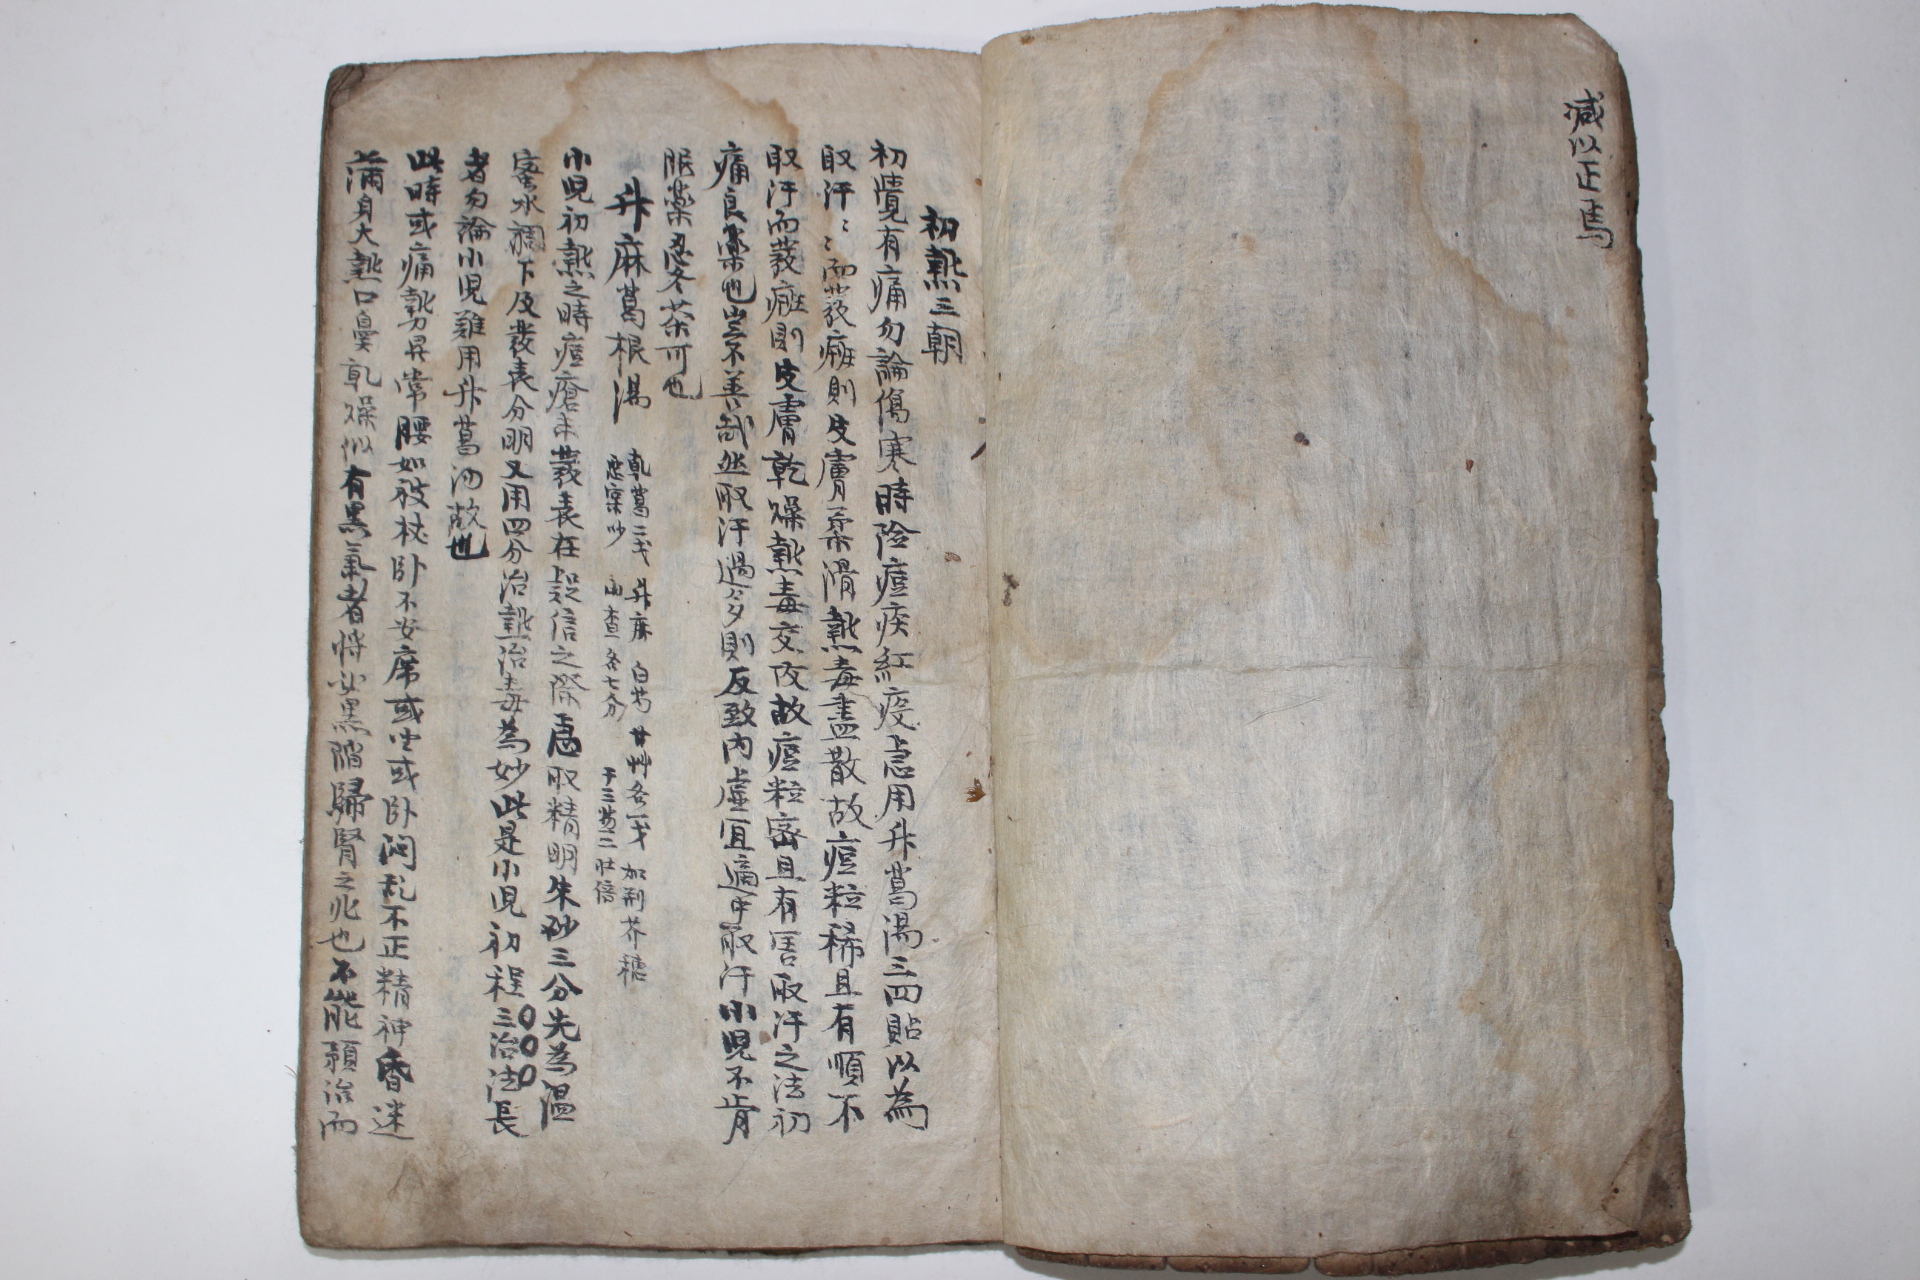 減以正焉
初熱三朝
初覺有痛勿論傷寒時險痘疾紅疫急用升葛湯三四貼以為
取汗〻〻而發癍則皮膚柔滑熱毒盡散故痘粒稀且有順不
取汗而發癍則皮膚乾燥熱毒交攻故痘粒密且有害取汗之法初
痛良藥也豈不善哉然取汗過多則反致內虛宜適中取汗小児不肯
服藥忍冬茶可也
升麻葛根湯
乾葛二戈 升麻 白芍 甘艸各一戈 加荆芥穗
山查各七分 干三葱二 壯倍
小児初熱之時痘瘡未發表在疑信之際急取精明朱砂三分先為温
蜜水調下及發表分明又用四分治熱治毒為妙此是小児初程三治法長
者勿論小児雖用升葛湯故也
此時或痛勢異常腰如被杖卧不安席或坐或卧悶乱不正精神昏迷
滿身大熱口鼻乾燥似有黑氣者將必黑陷歸腎之兆也不能預治而